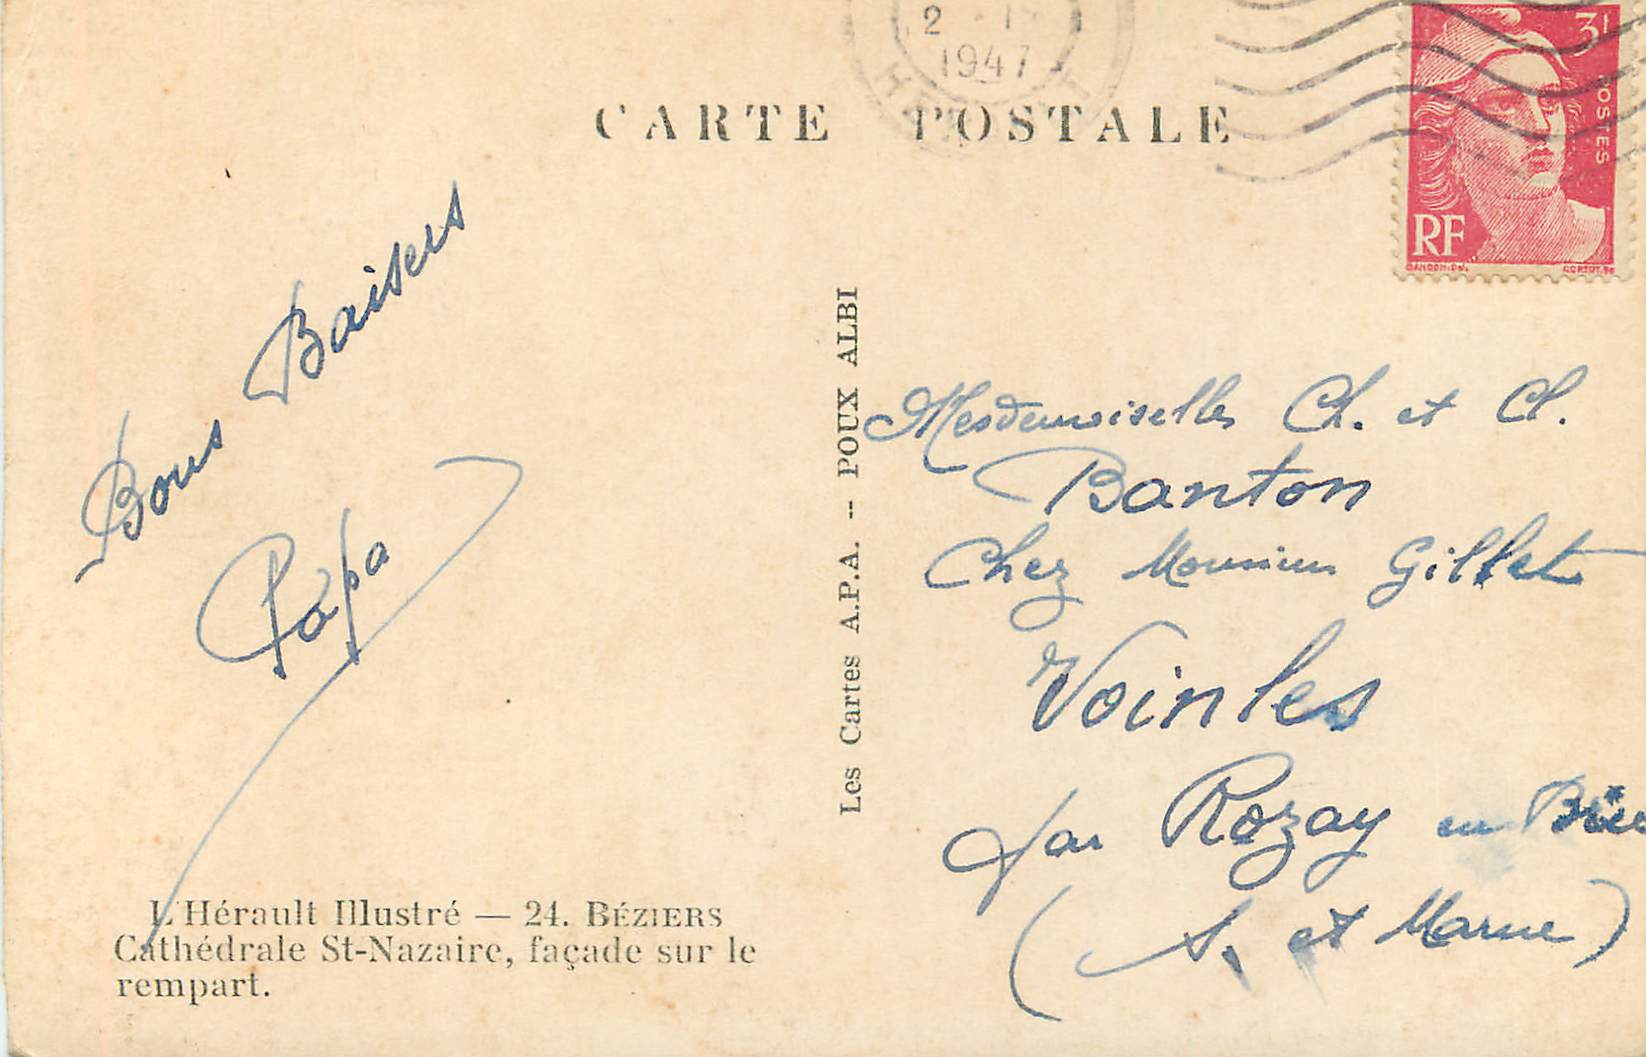 2
1947
CARTE POSTALE
3F
POSTES
RF
GANDON.Del.
CORTOT.Sc
Bons Baisers
Papa
Les Cartes A.P.A. -- POUX ALBI
Mesdemoiselles Ch. et Cl.
Banton
Chez Monsieur Gillet
Voinles
par Rozay en Brie
(S. et Marne)
L'Hérault Illustré — 24. BÉZIERS
Cathédrale St-Nazaire, façade sur le
rempart.